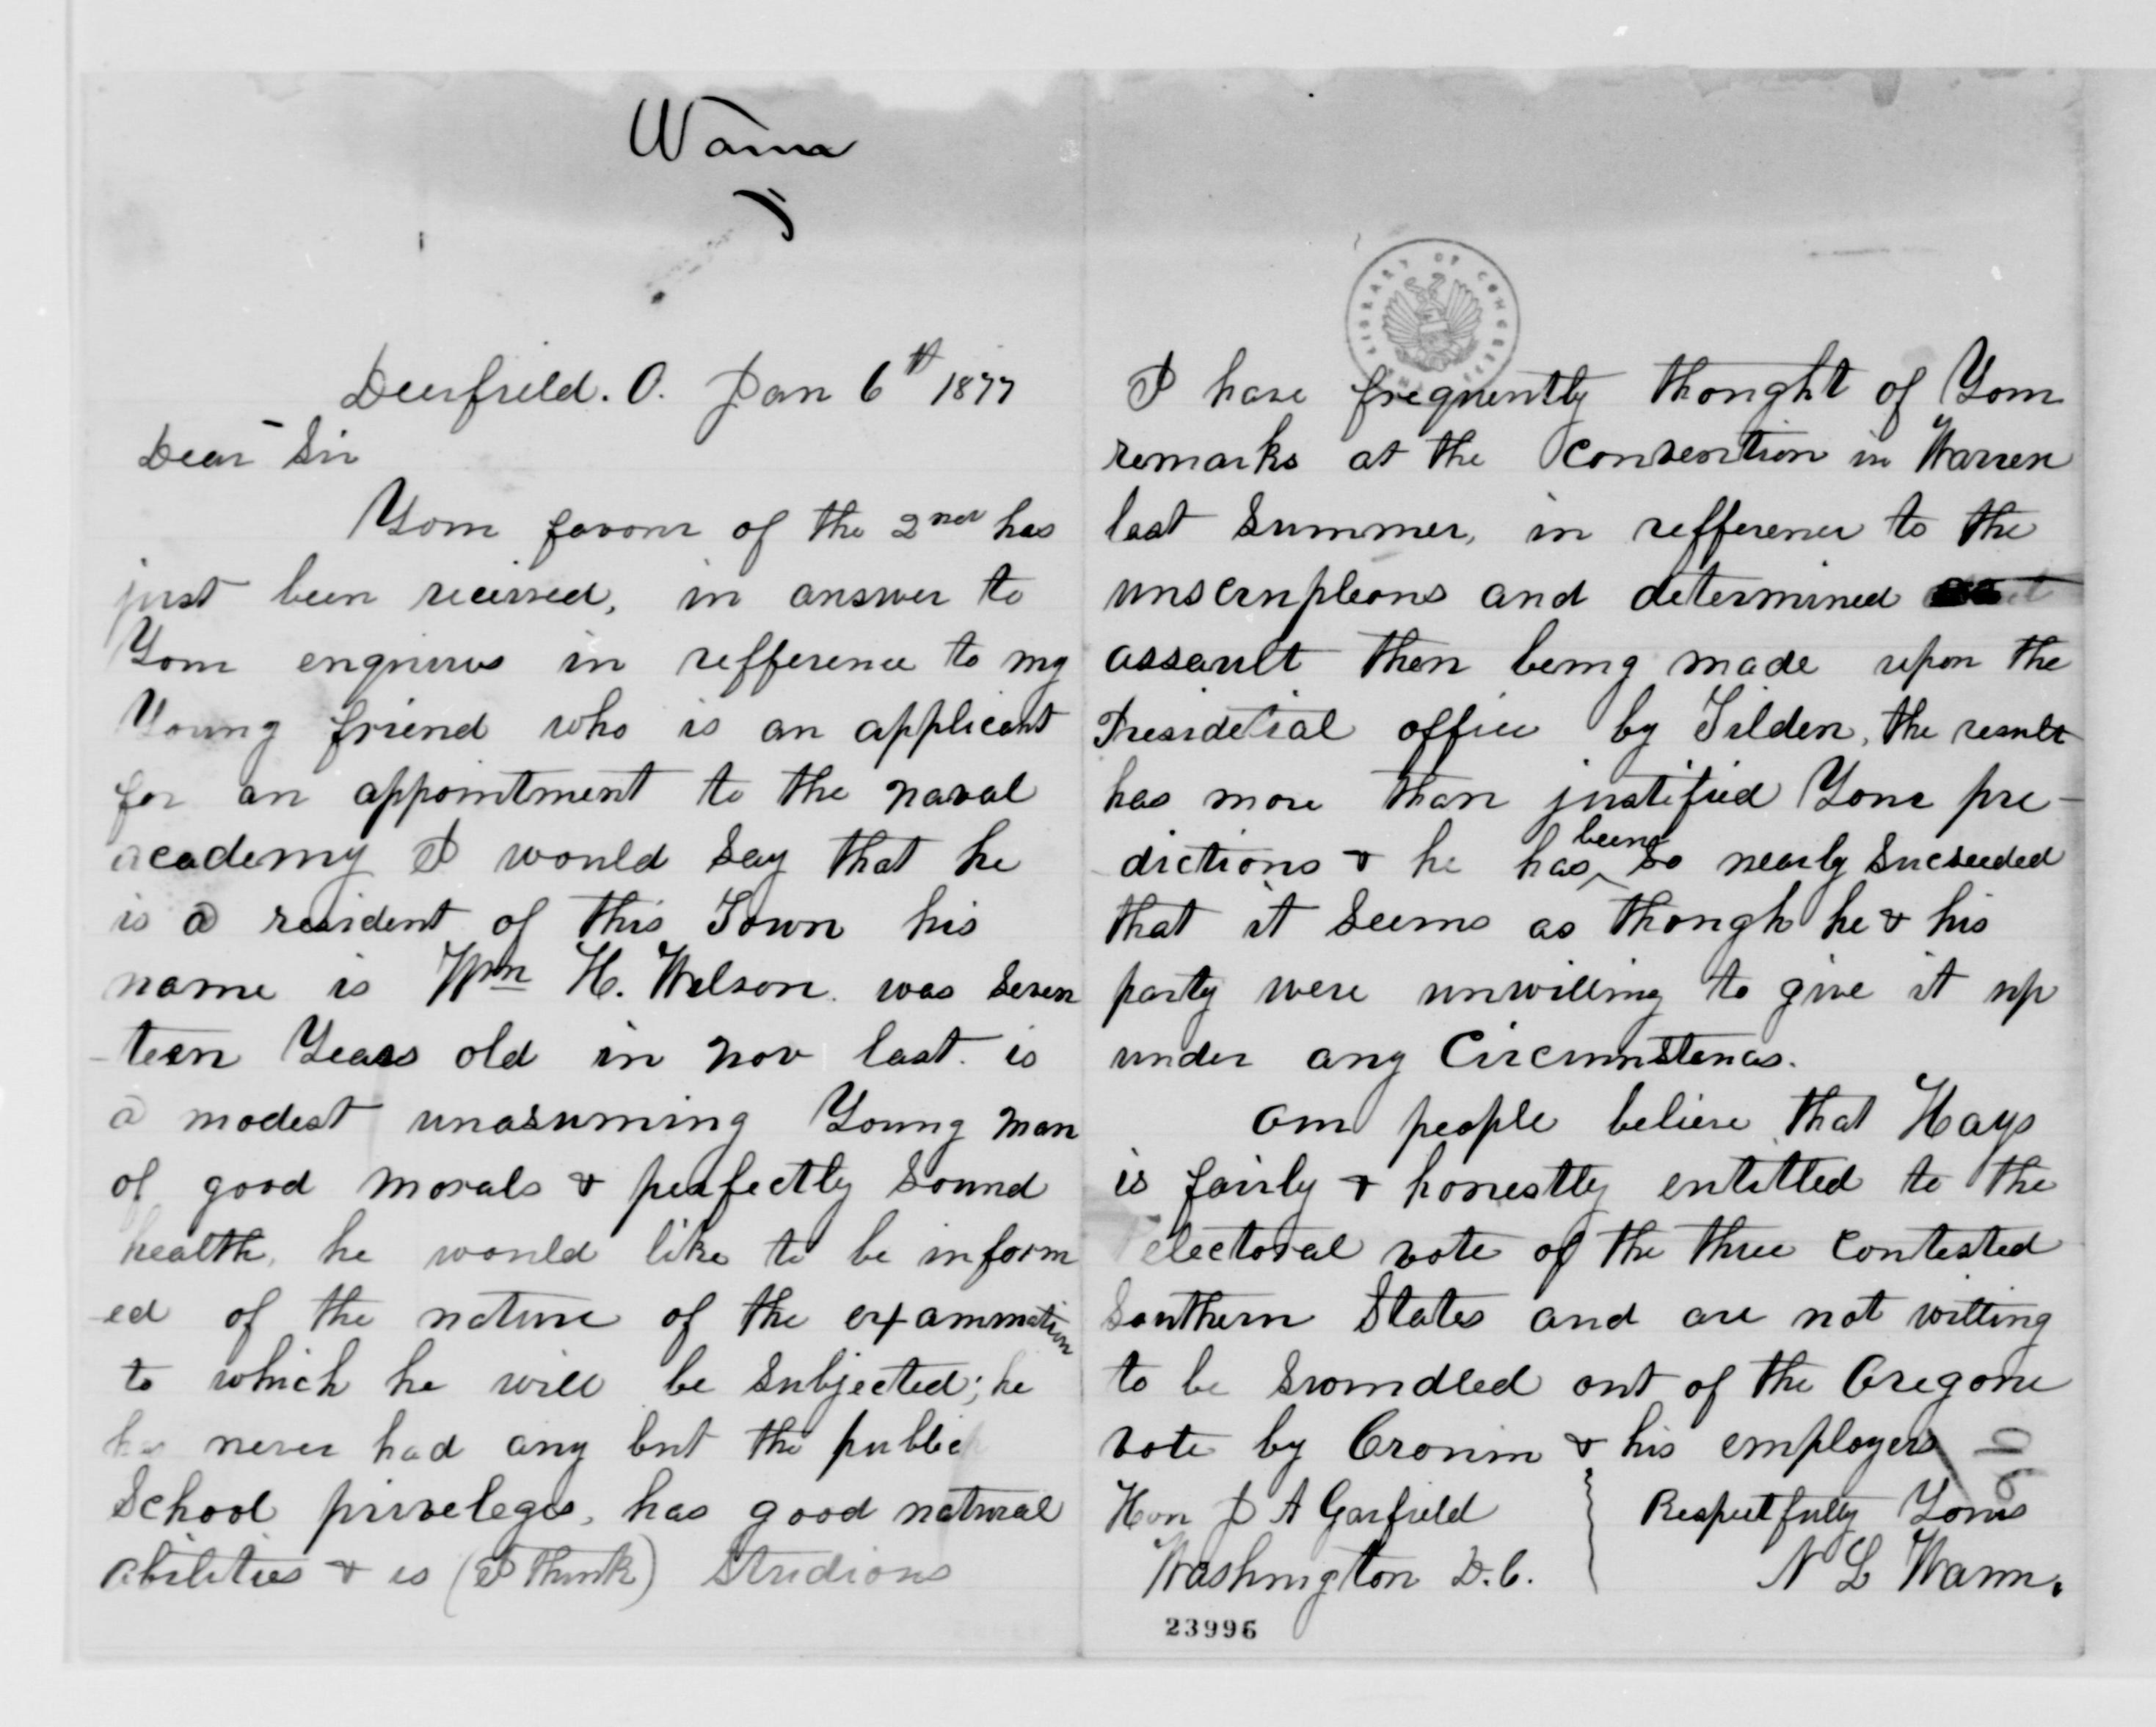 Wann
Deerfield. O. Jan 6th 1877
Dear Sir
Your favour of the 2nd has
just been received, in answer to
Your enquires in refference to my
Young friend who is an applicant
for an appointment to the naval
academy I would Say that he
is a resident of this Town his
name is Wm H. Wilson. was Seven
-teen Years old in Nov last. is
a modest unasuming Young man
of good morals & perfectly Sound
health, he would like to be inform
-ed of the nature of the examination
to which he will be Subjected; he
has never had any but the public
School priveleges, has good natural
abilities & is (I think) Studious
LIBRARY OF CONGRESS
I have frequently thought of Your
remarks at the Convention in Warren
last Summer, in refference to the
unscrupleous and determined
assault then being made upon the
Presidetial office by Tilden, the result
has more than justified Your pre-
dictions & he has been so nearly Succeeded
that it Seems as though he & his
party were unwilling to give it up
under any Circumstances.
Our people believe that Hays
is fairly & honestly entitled to the
electoral vote of the three Contested
Southern States and are not willing
to be Swindled out of the Oregone
vote by Cronin & his employers
Hon J A Garfield
Washington D.C.
Respectfully Yours
N L Wann.
23996